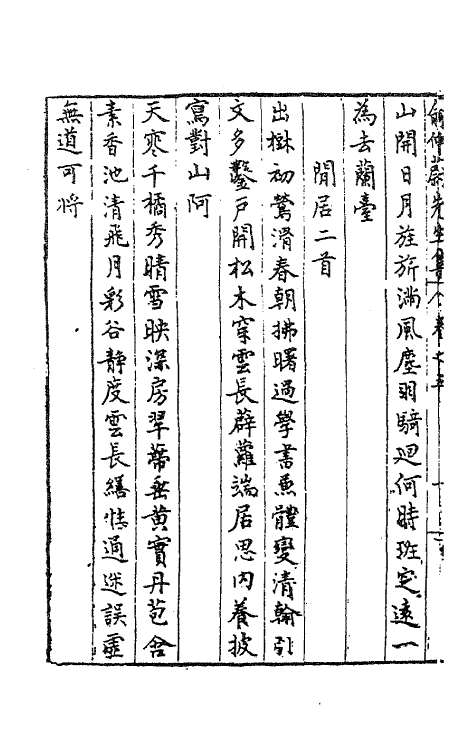 山開日月旌旂滿風塵羽騎迴何時班定遠一
為去蘭臺
閒居二首
出樹初鶯滑春朝拂曙過學書魚體變清翰引
文多鑿戶開松木穿雲長薜蘿端居思內養披
寫對山阿
天寒千橘秀晴雪映深房翠蒂垂黃實丹苞含
素香池清飛月彩谷靜度雲長繕性通迷誤虛
無道可將